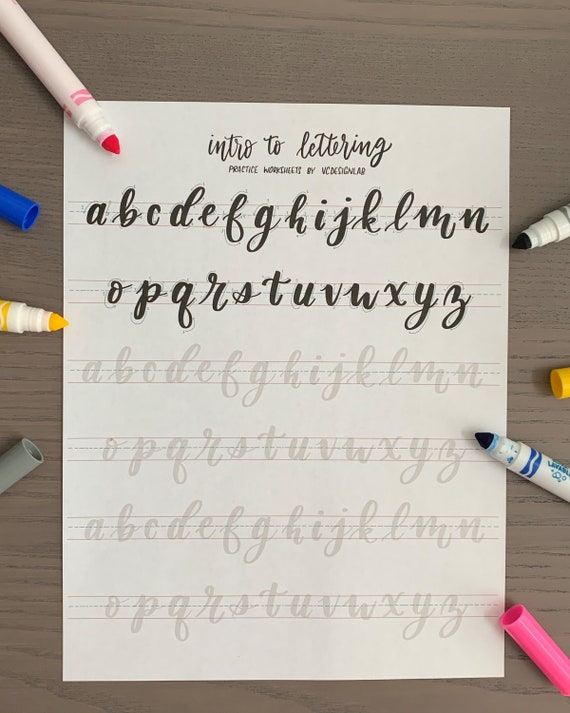 intro to lettering
PRACTICE WORKSHEETS BY VCDESIGNLAB
abcdefghijklmn
opqrstuvwxyz
abcdefghijklmn
opqrstuvwxyz
abcdefghijklmn
opqrstuvwxyz